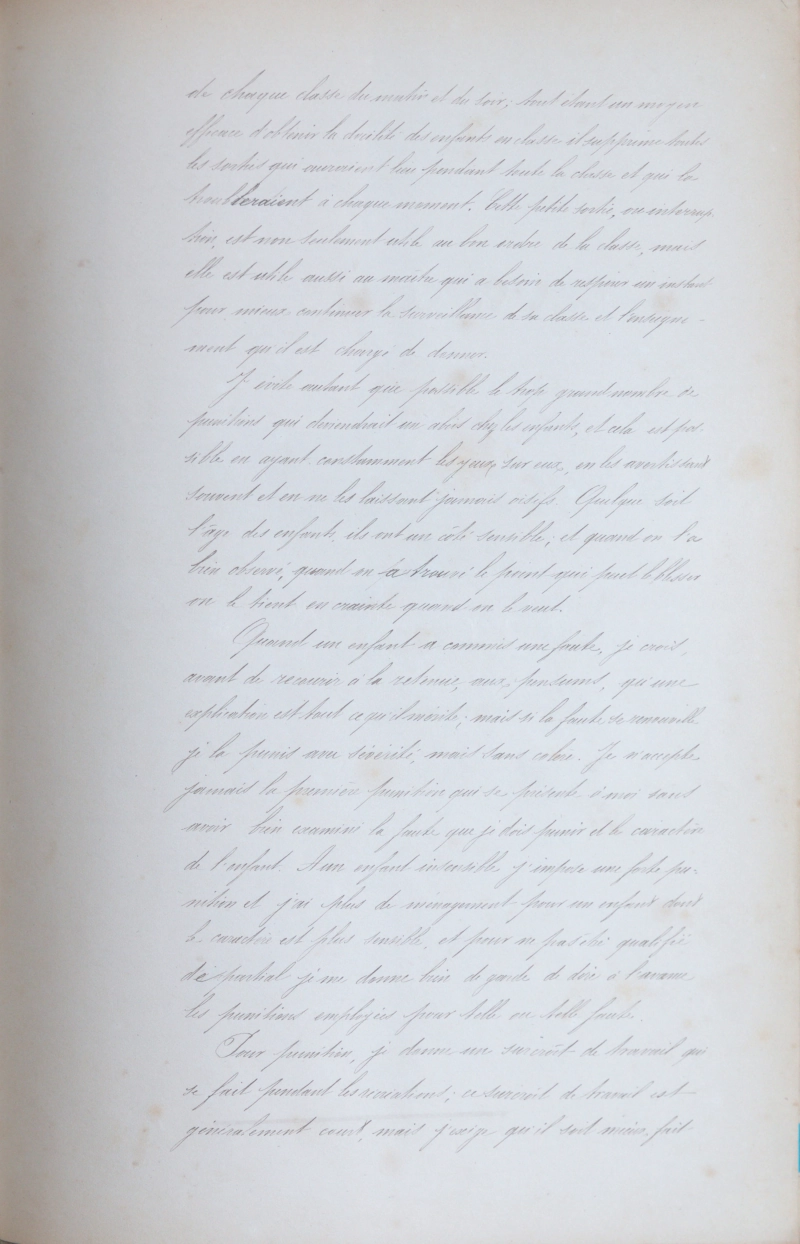 de chaque classe du matin et du soir; tout étant un moyen
efficace d'obtenir la docilité des enfants en classe il supprime toutes
les sorties qui auraient lieu pendant toute la classe et qui la
troubleraient à chaque moment. Cette petite sortie, ou interrup-
tion, est non seulement utile au bon ordre de la classe, mais
elle est utile aussi au maître qui a besoin de respirer un instant
pour mieux continuer la surveillance de sa classe et l'enseigne-
ment qu'il est chargé de donner.
J'évite autant que possible le trop grand nombre de
punitions qui deviendrait un abus chez les enfants, et cela est pos-
sible en ayant constamment les yeux sur eux, en les avertissant
souvent et en ne les laissant jamais oisifs. Quelque soit
l'âge des enfants, ils ont un côté sensible; et quand on l'a
bien observé, quand on a trouvé le point qui peut le blesser
on le tient en crainte quand on le veut.
Quand un enfant a commis une faute, je crois,
avant de recourir à la retenue, aux pensums, qu'une
explication est tout ce qu'il mérite; mais si la faute se renouvelle
je la punis avec sévérité, mais sans colère. Je n'accepte
jamais la première punition qui se présente à moi sans
avoir bien examiné la faute que je dois punir et le caractère
de l'enfant. A un enfant insensible j'impose une forte pu-
nition et j'ai plus de ménagement pour un enfant dont
le caractère est plus sensible, et pour ne pas être qualifié
de partial je me donne bien de garde de dire à l'avance
les punitions employées pour telle ou telle faute.
Pour punition, je donne un surcroît de travail qui
se fait pendant les récréations; ce surcroît de travail est
généralement court, mais j'exige qu'il soit mieux fait